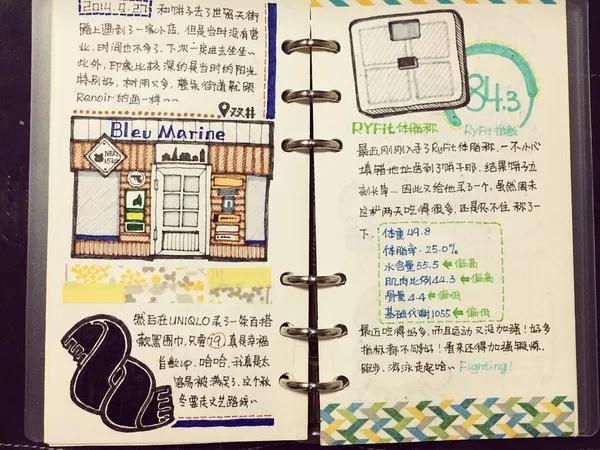 2014.9.27 和饼子去了世贸天街
路上遇到了一家小店,但是当时没有营
业,时间也不多了,下次一定进去坐坐~
此外,印象比较深的是当时的阳光
特别好,树荫又多,整条街道就跟
Renoir的画一样~~
双井
Bleu Marine
然后在UNIQLO买了一条百搭
款围巾,只要79,真是幸福
指数up,哈哈,我真是太
容易被满足了,这个秋
冬要走文艺路线~
84.3
RYFit体脂称
RyFit指数
最近刚刚入手了RyFit体脂称,一不小心
填错地址寄到了饼子那,结果饼子立
刻长草...因此又给他买了一个,虽然周末
这样两天吃得很多,还是忍不住称了一
下.
体重 49.8
体脂率.25.0%
水含量 55.5 ←偏高
肌肉比例 44.3 ←偏高
骨量 4.4 ←偏低
基础代谢 1055 ←偏低
最近吃得好多,而且运动又没加强!好多
指标都不够好!看来还得加强锻炼,
跑步、游泳走起哈~ Fighting!